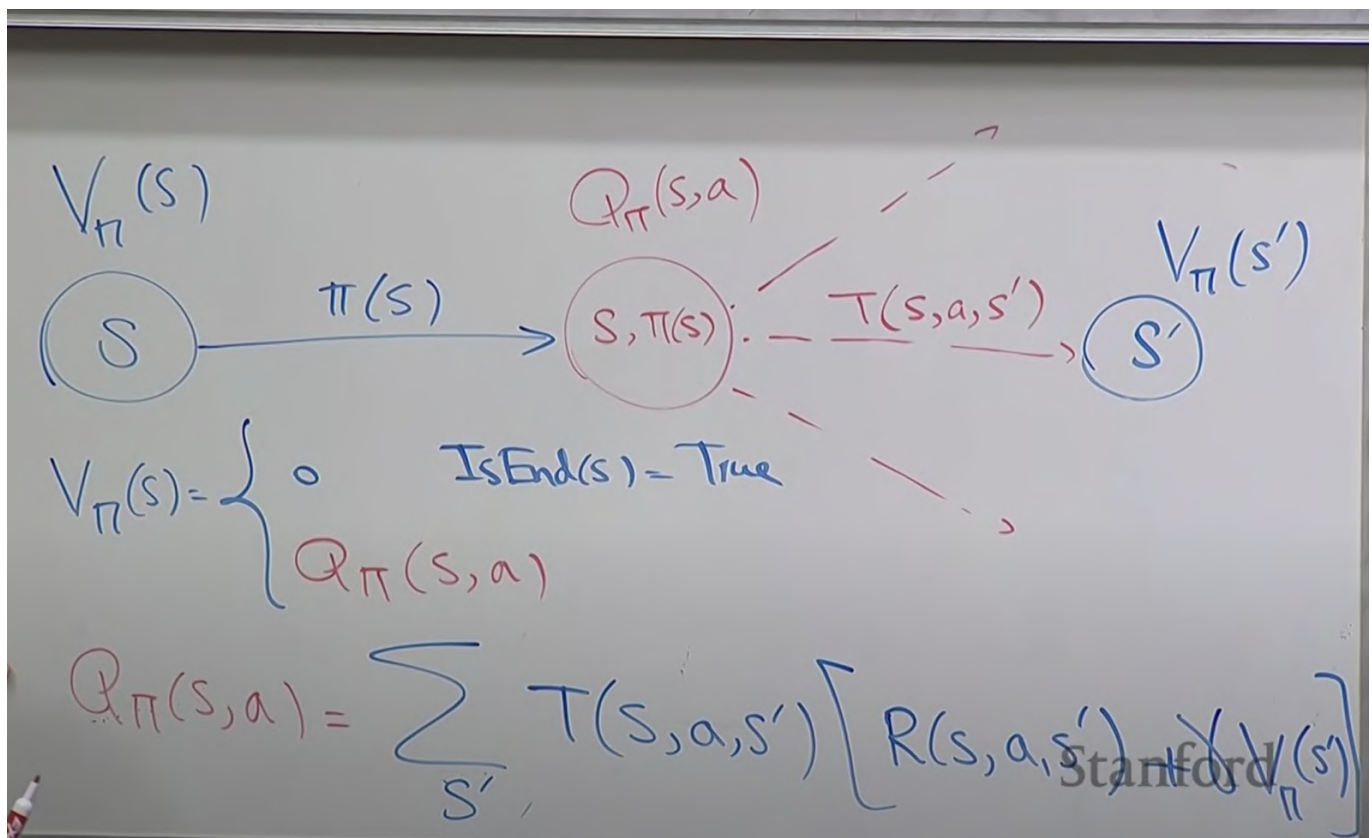 V_π(s)
Q_π(s,a)
V_π(s')
S
π(s)
S, π(s)
T(s,a,s')
S'
V_π(s) = { 0 IsEnd(s) = True
Q_π(s,a)
Q_π(s,a) = Σ_{s'} T(s,a,s') [ R(s,a,s') + γ V_π(s') ]
Stanford